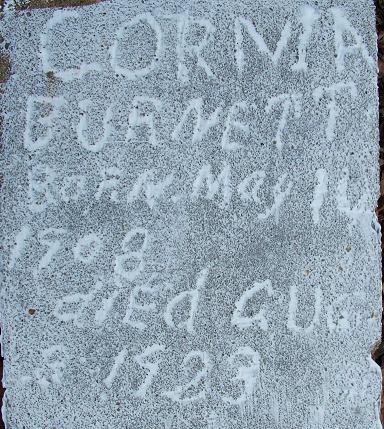 CORNIA
BURNETT
BORN. May 16
1908
diEd AUG
8. 1923